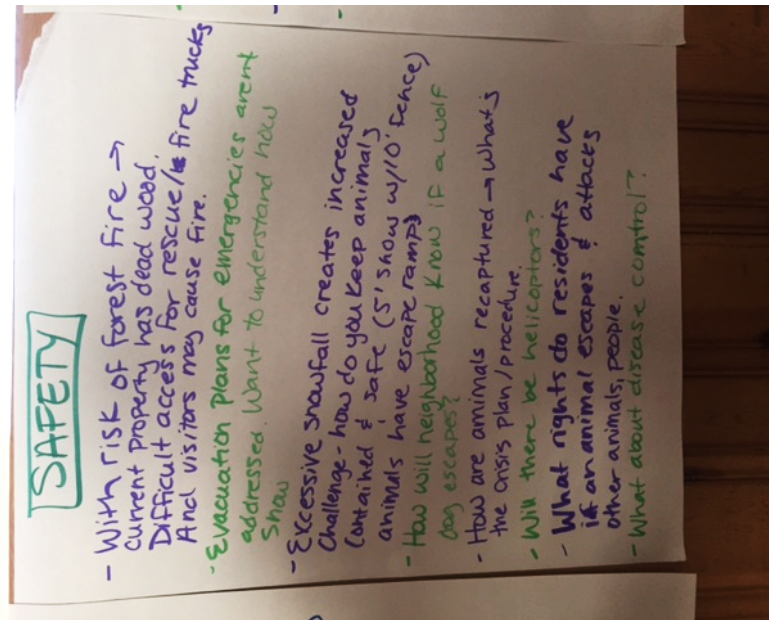 SAFETY
- With risk of forest fire →
current property has dead wood.
Difficult access for rescue/ fire trucks
And visitors may cause fire.
- Evacuation plans for emergencies arent
addressed. Want to understand how
Show
- Excessive snowfall creates increased
Challenge - how do you keep animals
Contained & safe (5' snow w/10' fence)
animals have escape ramps
- How will neighborhood know if a wolf
dog escapes?
- How are animals recaptured → What's
the crisis plan/procedure.
- Will there be helicopters?
- What rights do residents have
if an animal escapes & attacks
other animals, people.
- What about disease comtrol?